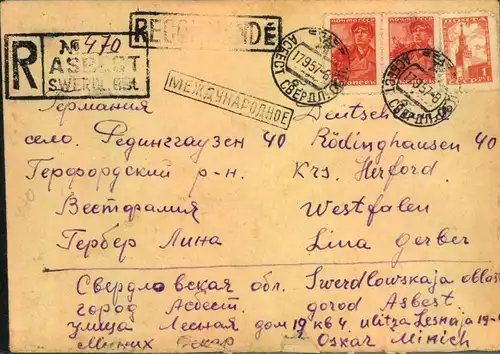 R
№ 470
ASBEST
SWERDL. obl.
RECOMMANDÉ
МЕЖДУНАРОДНОЕ
ПОЧТА СССР
ПОЧТА СССР
ПОЧТА
АСБЕСТ СВЕРДЛ.
Германия
село. Рединггаузен 40
Герфордский р-н.
Вестфалия
Гербер Лина
Deutsch
Rödinghausen 40
Krs. Herford
Westfalen
Lina Gerber
Свердловская обл.
город Асбест.
улица Лесная дом 19 кв 4.
Миних Оскар
Swerdlowskaja oblas
gorod Asbest.
ulitza Lesnaja 19-
Oskar Minich